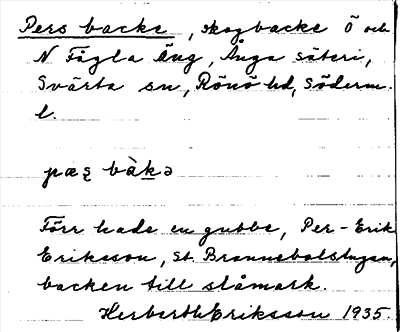 Pers backe, skogbacke Ö och
N Fågla Äng, Ånga säteri,
Svärta sn, Rönö hd, Söderm.
l.
pæʂ bàkə
Förr hade en gubbe, Per-Erik
Eriksson, St. Brannebolstugan,
backen till slåmark.
Herberth Eriksson 1935.